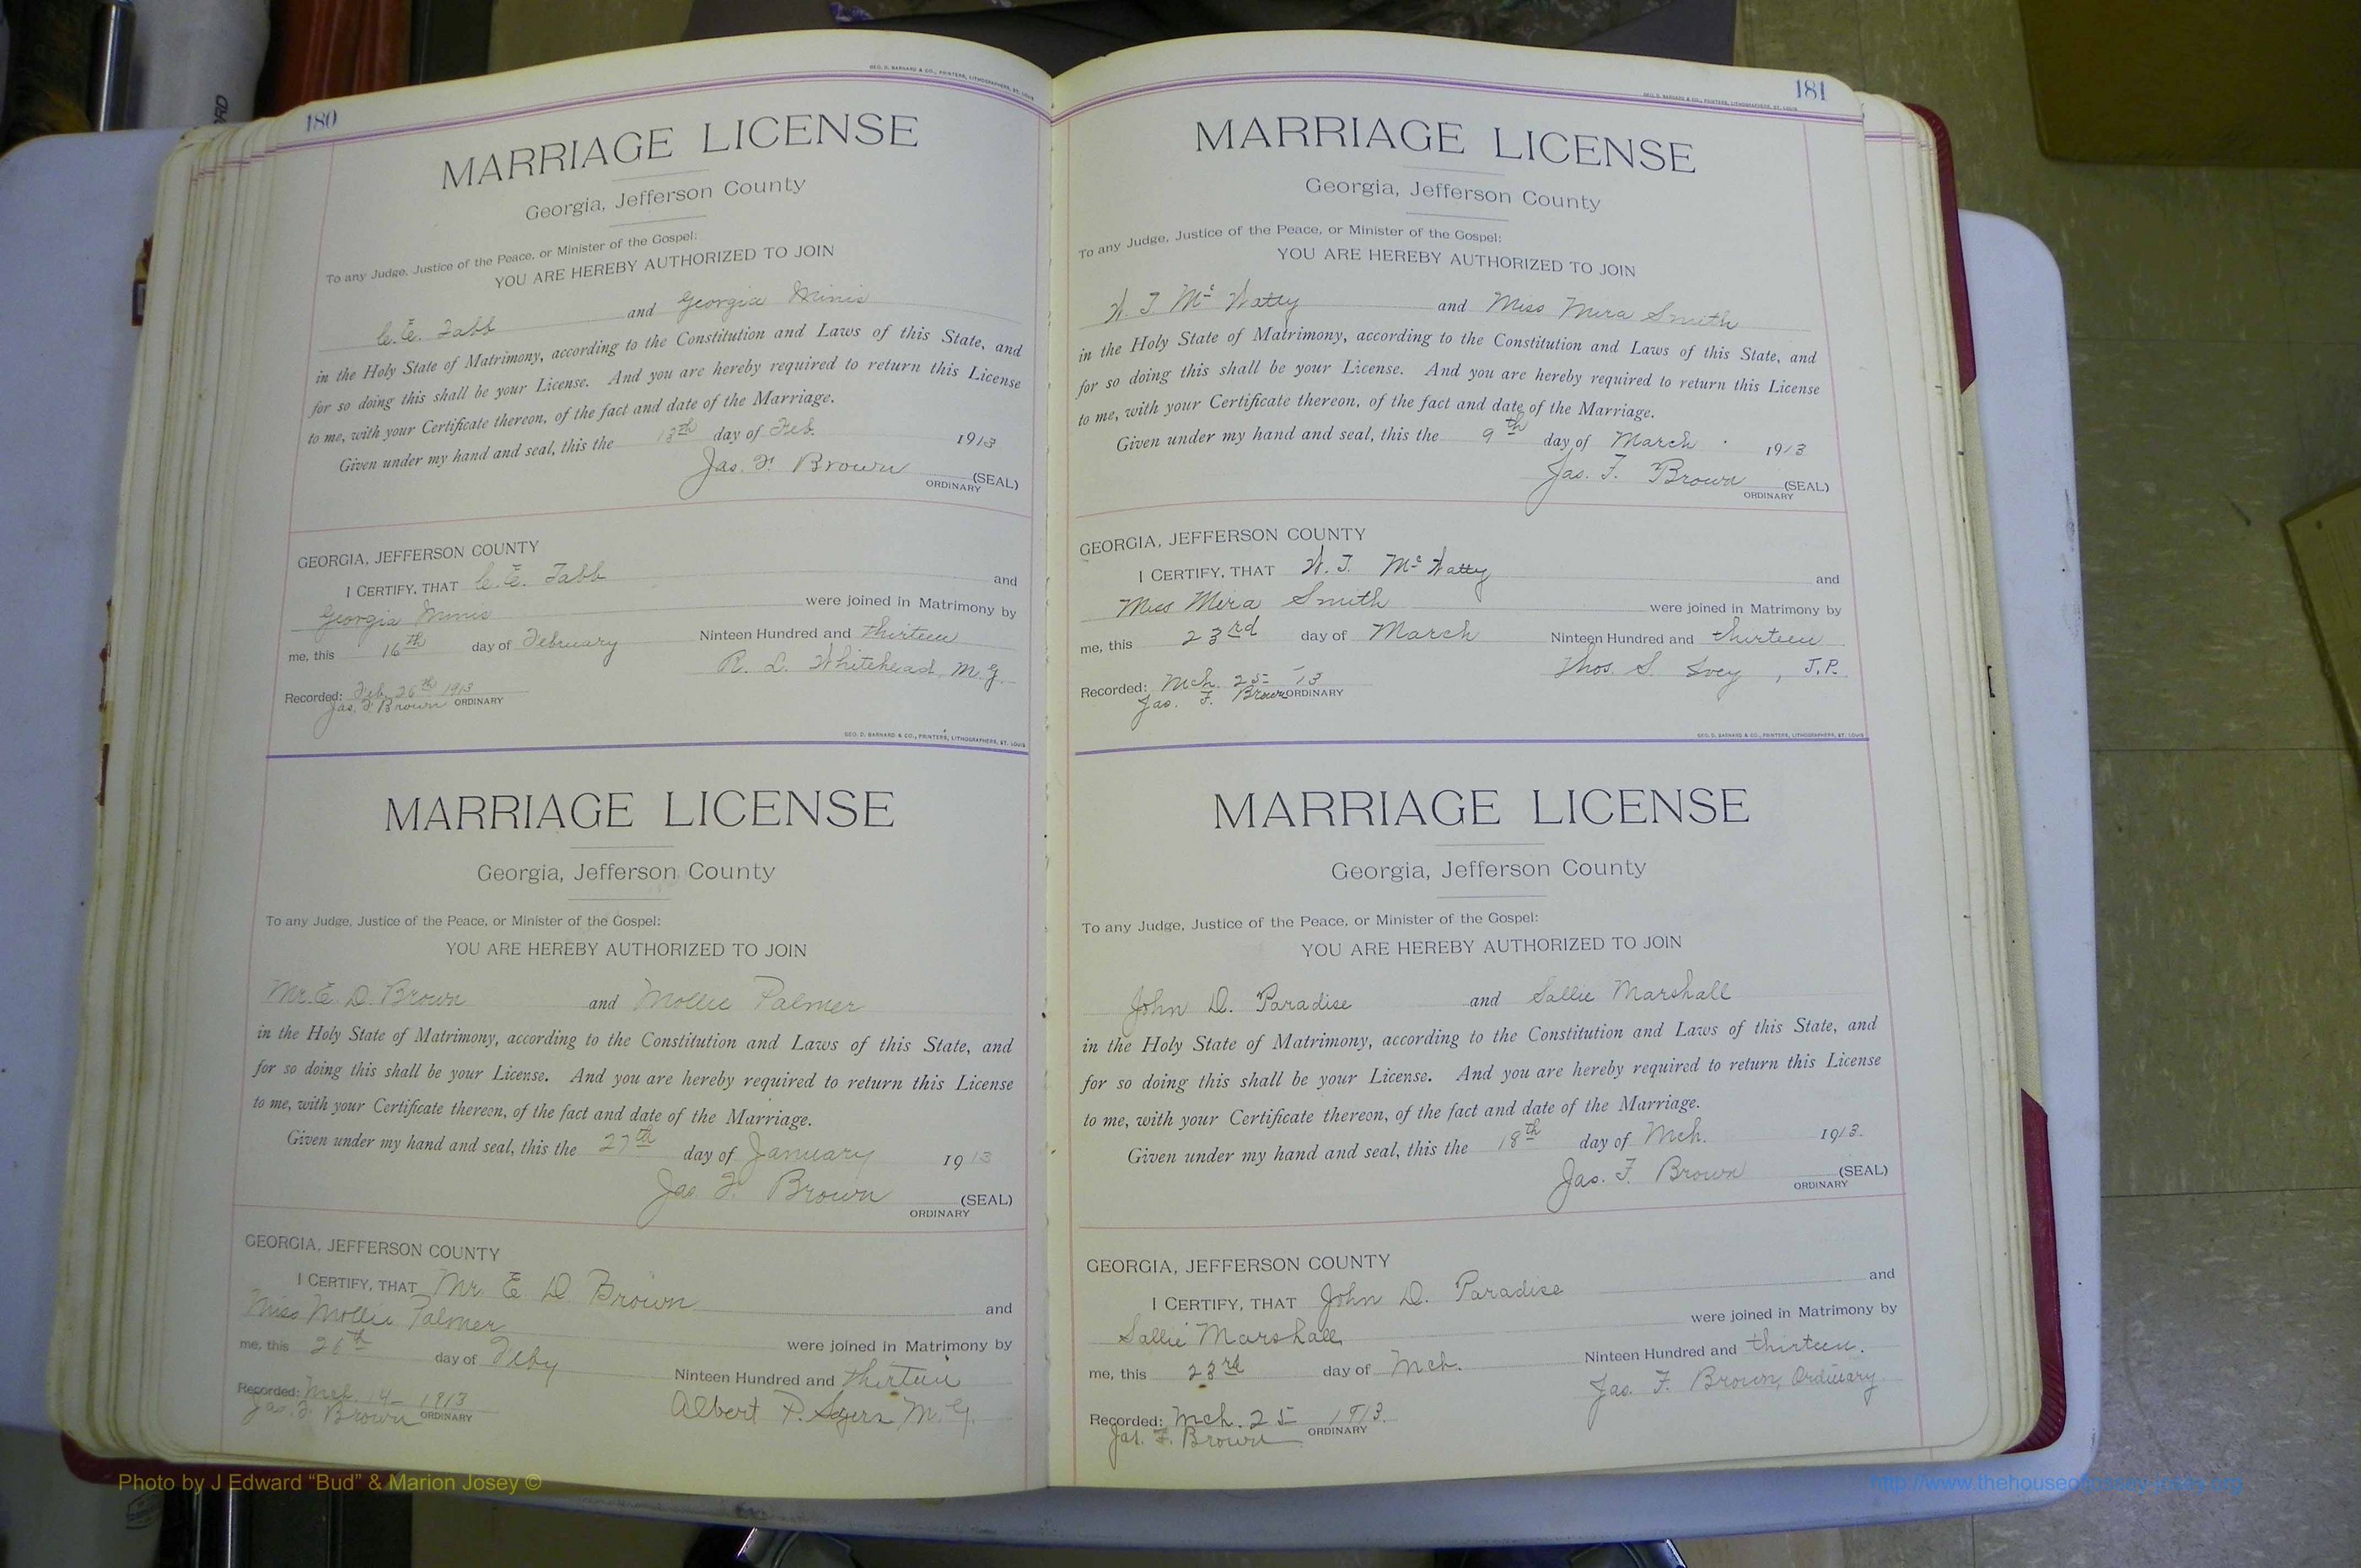 180
GEO. D. BARNARD & CO., PRINTERS, LITHOGRAPHERS, ST. LOUIS
MARRIAGE LICENSE
Georgia, Jefferson County
To any Judge, Justice of the Peace, or Minister of the Gospel:
YOU ARE HEREBY AUTHORIZED TO JOIN
C. E. Tabb and Georgia Minis
in the Holy State of Matrimony, according to the Constitution and Laws of this State, and
for so doing this shall be your License. And you are hereby required to return this License
to me, with your Certificate thereon, of the fact and date of the Marriage.
Given under my hand and seal, this the 13th day of Feb. 1913
Jas. F. Brown (SEAL)
ORDINARY
GEORGIA, JEFFERSON COUNTY
I CERTIFY, THAT C. E. Tabb and
Georgia Minis were joined in Matrimony by
me, this 16th day of February Ninteen Hundred and thirteen
R. L. Whitehead, M.G.
Recorded: Feb. 26th 1913
Jas. F. Brown ORDINARY
GEO. D. BARNARD & CO., PRINTERS, LITHOGRAPHERS, ST. LOUIS
MARRIAGE LICENSE
Georgia, Jefferson County
To any Judge, Justice of the Peace, or Minister of the Gospel:
YOU ARE HEREBY AUTHORIZED TO JOIN
Mr. E. D. Brown and Mollie Palmer
in the Holy State of Matrimony, according to the Constitution and Laws of this State, and
for so doing this shall be your License. And you are hereby required to return this License
to me, with your Certificate thereon, of the fact and date of the Marriage.
Given under my hand and seal, this the 27th day of January 1913
Jas. F. Brown (SEAL)
ORDINARY
GEORGIA, JEFFERSON COUNTY
I CERTIFY, THAT Mr. E D Brown and
Miss Mollie Palmer were joined in Matrimony by
me, this 26th day of Feby Ninteen Hundred and thirteen
Albert P. M.G.
Recorded: Mch. 14 - 1913
Jas. F. Brown ORDINARY
181
GEO. D. BARNARD & CO., PRINTERS, LITHOGRAPHERS, ST. LOUIS
MARRIAGE LICENSE
Georgia, Jefferson County
To any Judge, Justice of the Peace, or Minister of the Gospel:
YOU ARE HEREBY AUTHORIZED TO JOIN
W. T. Mc Watty and Miss Mira Smith
in the Holy State of Matrimony, according to the Constitution and Laws of this State, and
for so doing this shall be your License. And you are hereby required to return this License
to me, with your Certificate thereon, of the fact and date of the Marriage.
Given under my hand and seal, this the 9th day of March 1913
Jas. F. Brown (SEAL)
ORDINARY
GEORGIA, JEFFERSON COUNTY
I CERTIFY, THAT W. T. Mc Watty and
Miss Mira Smith were joined in Matrimony by
me, this 23rd day of March Ninteen Hundred and thirteen
Thos. S. Ivey, J.P.
Recorded: Mch. 25 - 13
Jas. F. Brown ORDINARY
GEO. D. BARNARD & CO., PRINTERS, LITHOGRAPHERS, ST. LOUIS
MARRIAGE LICENSE
Georgia, Jefferson County
To any Judge, Justice of the Peace, or Minister of the Gospel:
YOU ARE HEREBY AUTHORIZED TO JOIN
John D. Paradise and Sallie Marshall
in the Holy State of Matrimony, according to the Constitution and Laws of this State, and
for so doing this shall be your License. And you are hereby required to return this License
to me, with your Certificate thereon, of the fact and date of the Marriage.
Given under my hand and seal, this the 18th day of Mch. 1913.
Jas. F. Brown (SEAL)
ORDINARY
GEORGIA, JEFFERSON COUNTY
I CERTIFY, THAT John D. Paradise and
Sallie Marshall were joined in Matrimony by
me, this 23rd day of Mch. Ninteen Hundred and thirteen.
Jas. F. Brown, Ordinary
Recorded: Mch. 25 1913.
Jas. F. Brown ORDINARY
Photo by J Edward “Bud” & Marion Josey ©